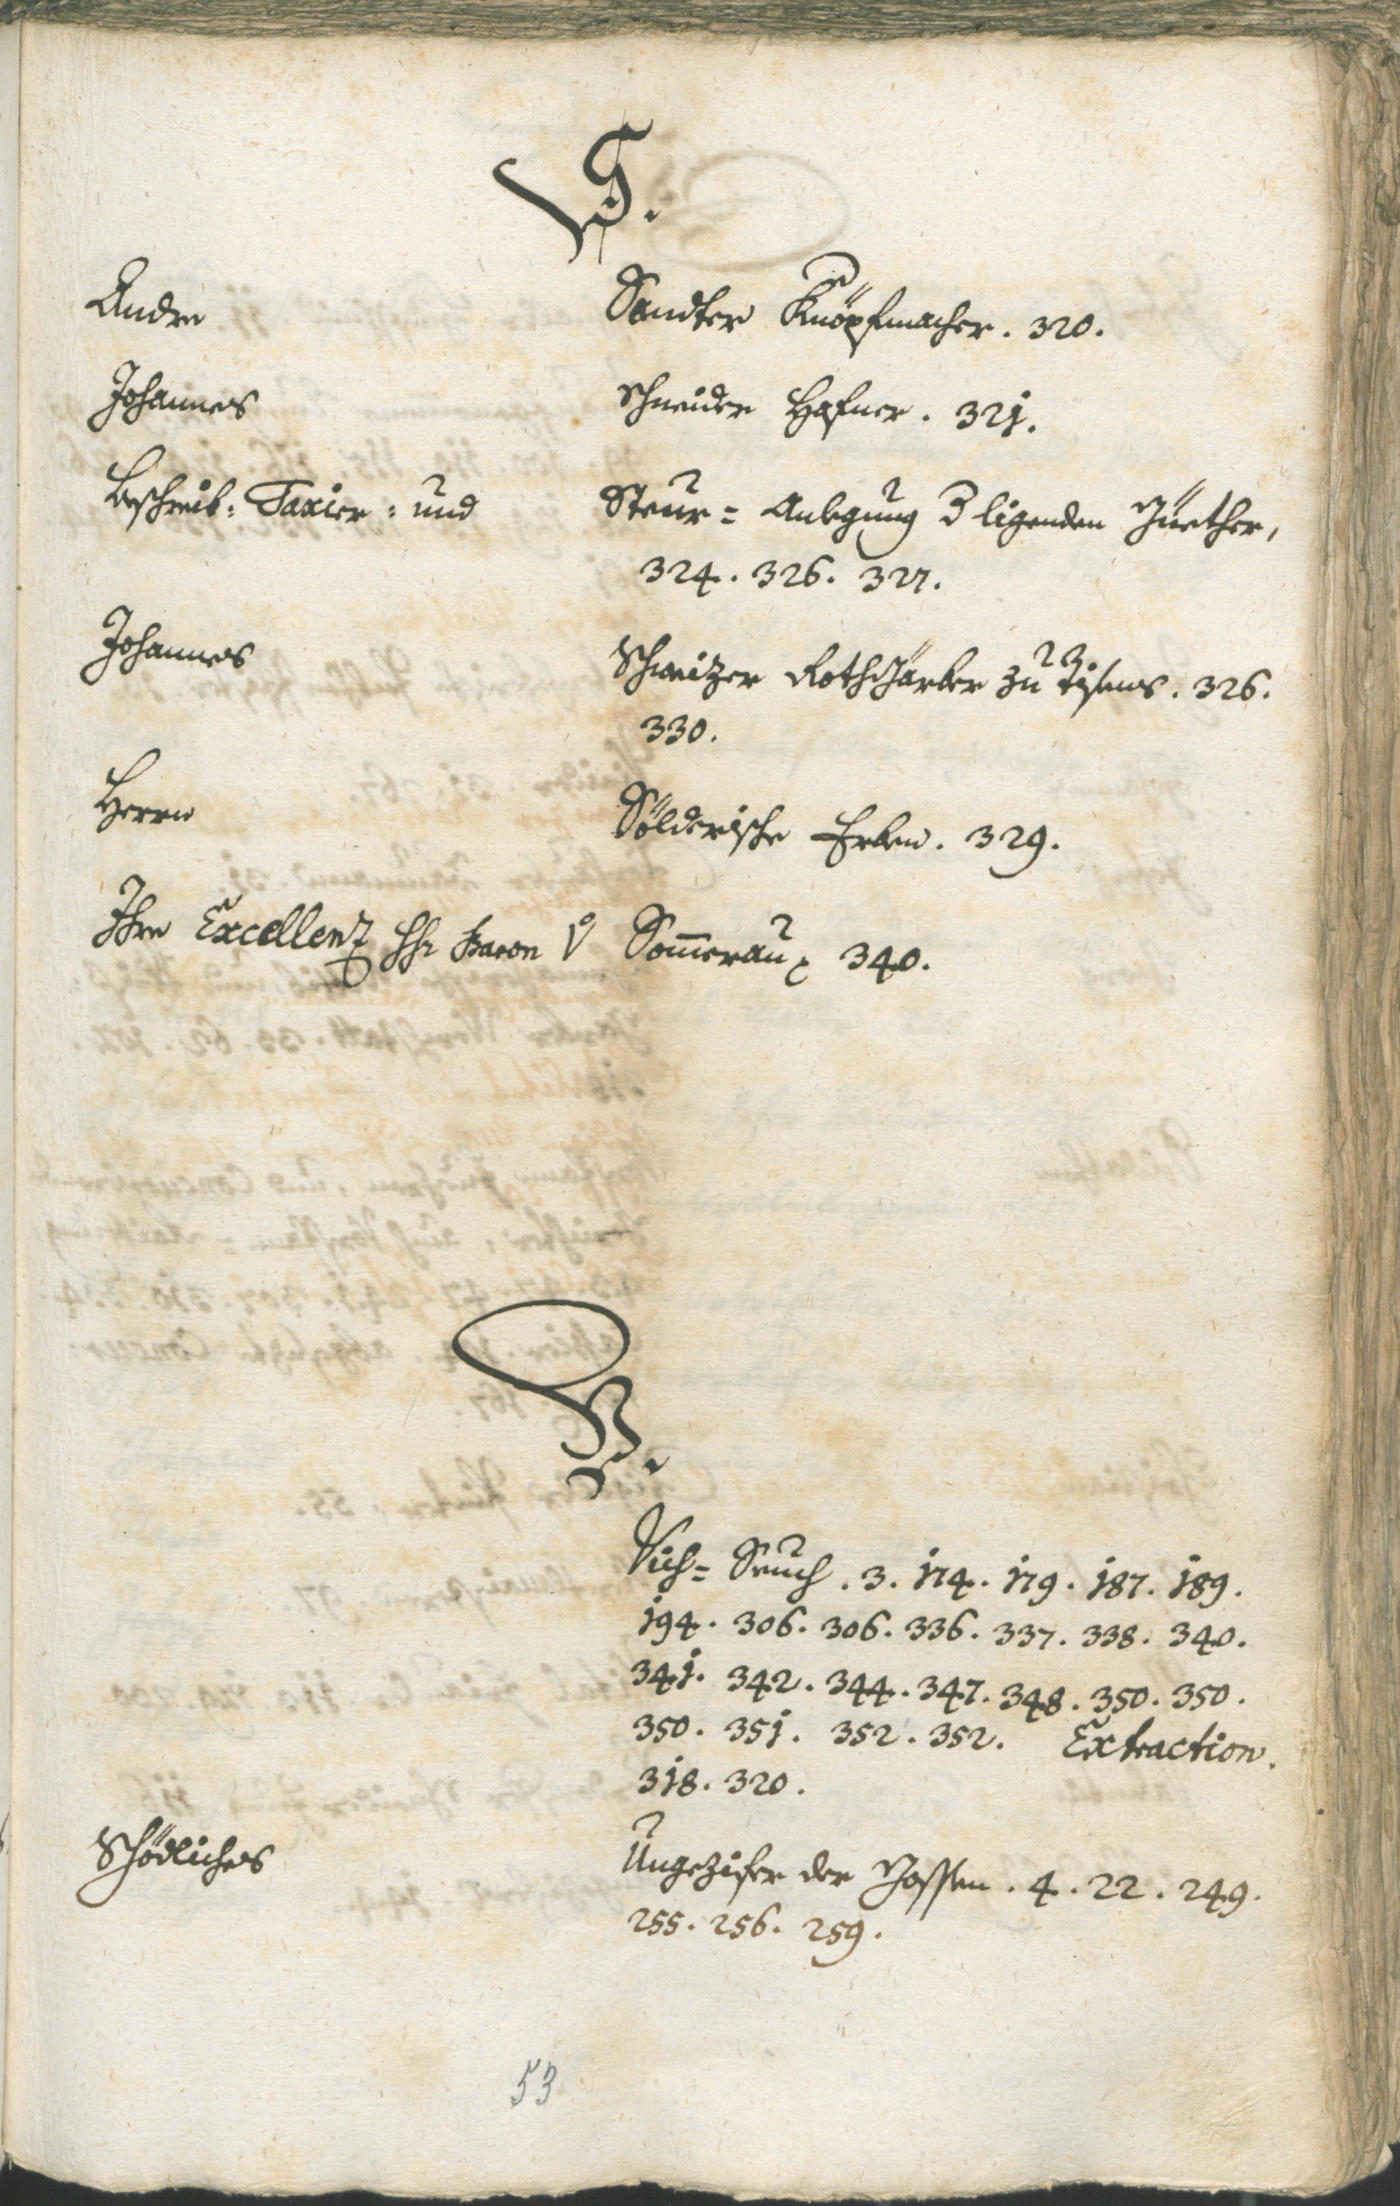 S.
Andre Sandter Knöpfmacher. 320.
Johannes Schneider Hafner. 321.
Beschreib: Taxier: und Steur= Anlegung ligenden Güether,
324. 326. 327.
Johannes Schweizer Rothgärber zu Tisens. 326.
330.
Herrn Sölderische Erben. 329.
Ihre Excellenz Baron v Som̄erau 340.
V.
Vieh= Seuch. 3. 174. 179. 187. 189.
194. 306. 306. 336. 337. 338. 340.
341. 342. 344. 347. 348. 350. 350.
350. 351. 352. 352. Extraction.
318. 320.
Schödliches Ungezifer der 4. 22. 249.
255. 256. 259.
53